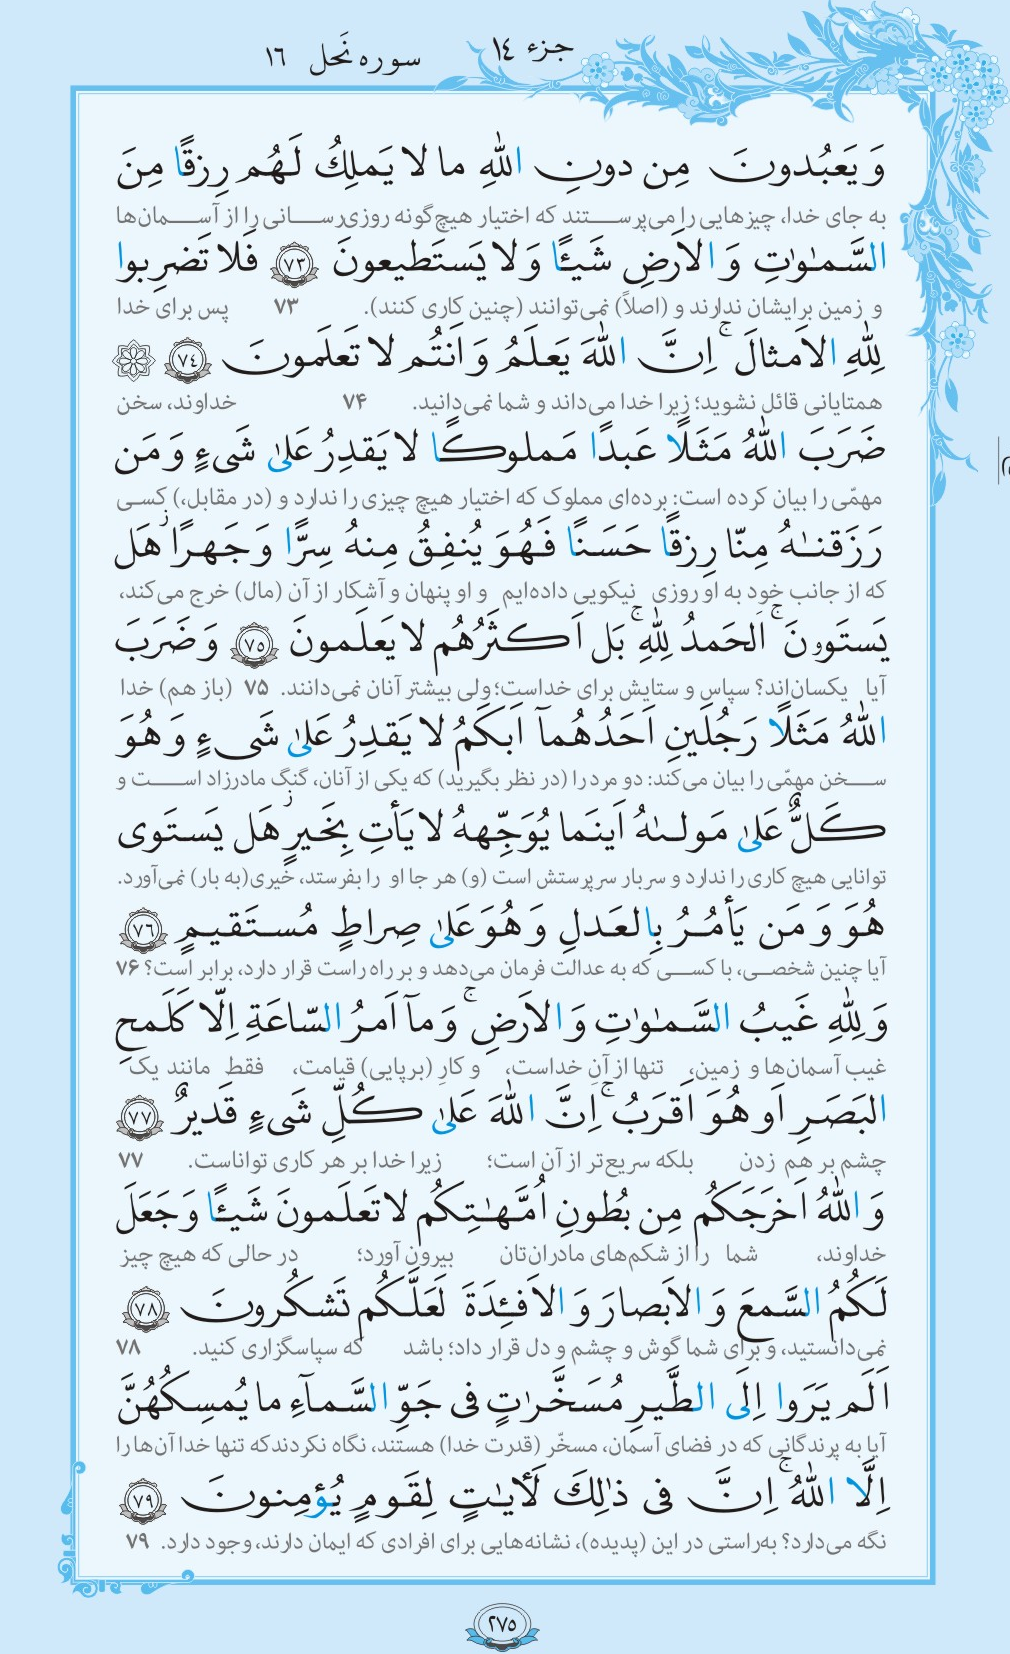 جزء ١٤
سوره نَحل ١٦
وَ يَعبُدونَ مِن دونِ اللّٰهِ ما لا يَملِكُ لَهُم رِزقًا مِنَ
به جای خدا، چیزهایی را می‌پرستند که اختیار هیچ‌گونه روزی‌رسانی را از آسمان‌ها
السَّمٰوٰتِ وَ الاَرضِ شَيـًٔا وَ لا يَستَطيعونَ ٧٣ فَلا تَضرِبوا
و زمین برایشان ندارند و (اصلاً) نمی‌توانند (چنین کاری کنند). ۷۳ پس برای خدا
لِلّٰهِ الاَمثالَ ۚ اِنَّ اللّٰهَ يَعلَمُ وَ اَنتُم لا تَعلَمونَ ٧٤ ۞
همتایانی قائل نشوید؛ زیرا خدا می‌داند و شما نمی‌دانید. ۷۴ خداوند، سخن
ضَرَبَ اللّٰهُ مَثَلًا عَبدًا مَملوكًا لا يَقدِرُ عَلىٰ شَىءٍ وَ مَن
مهمّی را بیان کرده است: برده‌ای مملوک که اختیار هیچ چیزی را ندارد و (در مقابل،) کسی
رَزَقنٰهُ مِنّا رِزقًا حَسَنًا فَهُوَ يُنفِقُ مِنهُ سِرًّا وَ جَهرًا ۖ هَل
که از جانب خود به او روزی نیکویی داده‌ایم و او پنهان و آشکار از آن (مال) خرج می‌کند،
يَستَوۥنَ ۚ اَلحَمدُ لِلّٰهِ ۚ بَل اَكثَرُهُم لا يَعلَمونَ ٧٥ وَ ضَرَبَ
آیا یکسان‌اند؟ سپاس و ستایش برای خداست؛ ولی بیشتر آنان نمی‌دانند. ۷۵ (باز هم) خدا
اللّٰهُ مَثَلًا رَجُلَينِ اَحَدُهُمآ اَبكَمُ لا يَقدِرُ عَلىٰ شَىءٍ وَ هُوَ
سخن مهمّی را بیان می‌کند: دو مرد را (در نظر بگیرید) که یکی از آنان، گنگ مادرزاد است و
كَلٌّ عَلىٰ مَولىٰهُ اَينَما يُوَجِّههُ لا يَأتِ بِخَيرٍ ۖ هَل يَستَوى
توانایی هیچ کاری را ندارد و سربار سرپرستش است (و) هر جا او را بفرستد، خیری (به بار) نمی‌آورد.
هُوَ وَ مَن يَأمُرُ بِالعَدلِ وَ هُوَ عَلىٰ صِراطٍ مُستَقيمٍ ٧٦
آیا چنین شخصی، با کسی که به عدالت فرمان می‌دهد و بر راه راست قرار دارد، برابر است؟ ۷۶
وَ لِلّٰهِ غَيبُ السَّمٰوٰتِ وَ الاَرضِ ۚ وَ مآ اَمرُ السّاعَةِ اِلّا كَلَمحِ
غیب آسمان‌ها و زمین، تنها از آنِ خداست، و کارِ (برپایی) قیامت، فقط مانند یک
البَصَرِ اَو هُوَ اَقرَبُ ۚ اِنَّ اللّٰهَ عَلىٰ كُلِّ شَىءٍ قَديرٌ ٧٧
چشم بر هم زدن بلکه سریع‌تر از آن است؛ زیرا خدا بر هر کاری تواناست. ۷۷
وَ اللّٰهُ اَخرَجَكُم مِن بُطونِ اُمَّهٰتِكُم لا تَعلَمونَ شَيـًٔا وَ جَعَلَ
خداوند، شما را از شکم‌های مادران‌تان بیرون آورد؛ در حالی که هیچ چیز
لَكُمُ السَّمعَ وَ الاَبصارَ وَ الاَفـِٔدَةَ لَعَلَّكُم تَشكُرونَ ٧٨
نمی‌دانستید، و برای شما گوش و چشم و دل قرار داد؛ باشد که سپاسگزاری کنید. ۷۸
اَلَم يَرَوا اِلَى الطَّيرِ مُسَخَّرٰتٍ فى جَوِّ السَّمآءِ ما يُمسِكُهُنَّ
آیا به پرندگانی که در فضای آسمان، مسخّر (قدرت خدا) هستند، نگاه نکردند که تنها خدا آن‌ها را
اِلَّا اللّٰهُ ۚ اِنَّ فى ذٰلِكَ لَأيٰتٍ لِقَومٍ يُؤمِنونَ ٧٩
نگه می‌دارد؟ به‌راستی در این (پدیده)، نشانه‌هایی برای افرادی که ایمان دارند، وجود دارد. ۷۹
٢٧٥